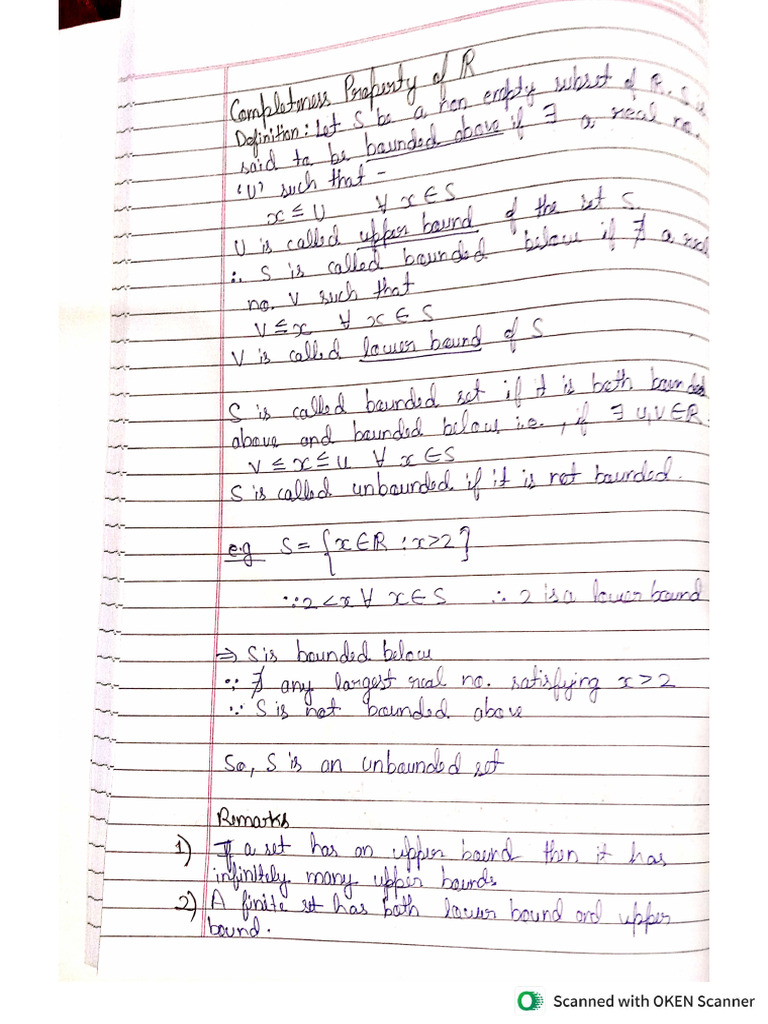 Completeness Property of R
Definition: Let S be a non empty subset of R. S is
said to be bounded above if ∃ a real no.
'U' such that -
x ≤ U ∀ x ∈ S
U is called upper bound of the set S.
∴ S is called bounded below if ∄ a real
no. V such that
V ≤ x ∀ x ∈ S
V is called lower bound of S
S is called bounded set if it is both bounded
above and bounded below i.e., if ∃ u,v ∈ R
V ≤ x ≤ U ∀ x ∈ S
S is called unbounded if it is not bounded.
e.g S = {x ∈ R : x > 2}
∵ 2 < x ∀ x ∈ S ∴ 2 is a lower bound
⇒ S is bounded below
∵ ∄ any largest real no. satisfying x > 2
∵ S is not bounded above
So, S is an unbounded set
Remarks
1) If a set has an upper bound then it has
infinitely many upper bounds
2) A finite set has both lower bound and upper
bound.
Scanned with OKEN Scanner